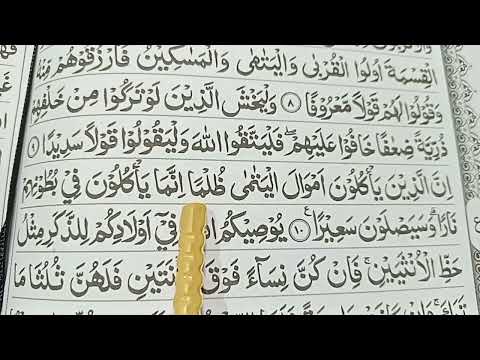 الْقِسْمَةَ اُولُوا الْقُرْبٰى وَالْيَتٰمٰى وَالْمَسٰكِيْنُ فَارْزُقُوْهُمْ مِّنْهُ
وَقُوْلُوْا لَهُمْ قَوْلًا مَّعْرُوْفًا ۝٨ وَلْيَخْشَ الَّذِيْنَ لَوْ تَرَكُوْا مِنْ خَلْفِهِمْ
ذُرِّيَّةً ضِعٰفًا خَافُوْا عَلَيْهِمْ ۖ فَلْيَتَّقُوا اللّٰهَ وَلْيَقُوْلُوْا قَوْلًا سَدِيْدًا ۝٩
اِنَّ الَّذِيْنَ يَاْكُلُوْنَ اَمْوَالَ الْيَتٰمٰى ظُلْمًا اِنَّمَا يَاْكُلُوْنَ فِيْ بُطُوْنِهِمْ
نَارًا ۗ وَسَيَصْلَوْنَ سَعِيْرًا ۝١٠ يُوْصِيْكُمُ فِيْٓ اَوْلَادِكُمْ لِلذَّكَرِ مِثْلُ
حَظِّ الْاُنْثَيَيْنِ ۚ فَاِنْ كُنَّ نِسَآءً فَوْقَ فَلَهُنَّ ثُلُثَا مَا